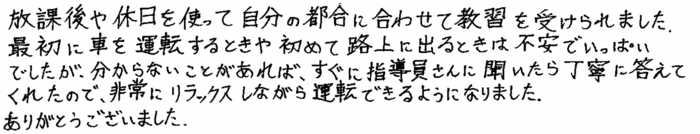 放課後や休日を使って自分の都合に合わせて教習を受けられました.
最初に車を運転するときや初めて路上に出るときは不安でいっぱい
でしたが、分からないことがあれば、すぐに指導員さんに聞いたら丁寧に答えて
くれたので、非常にリラックスしながら運転できるようになりました.
ありがとうございました.